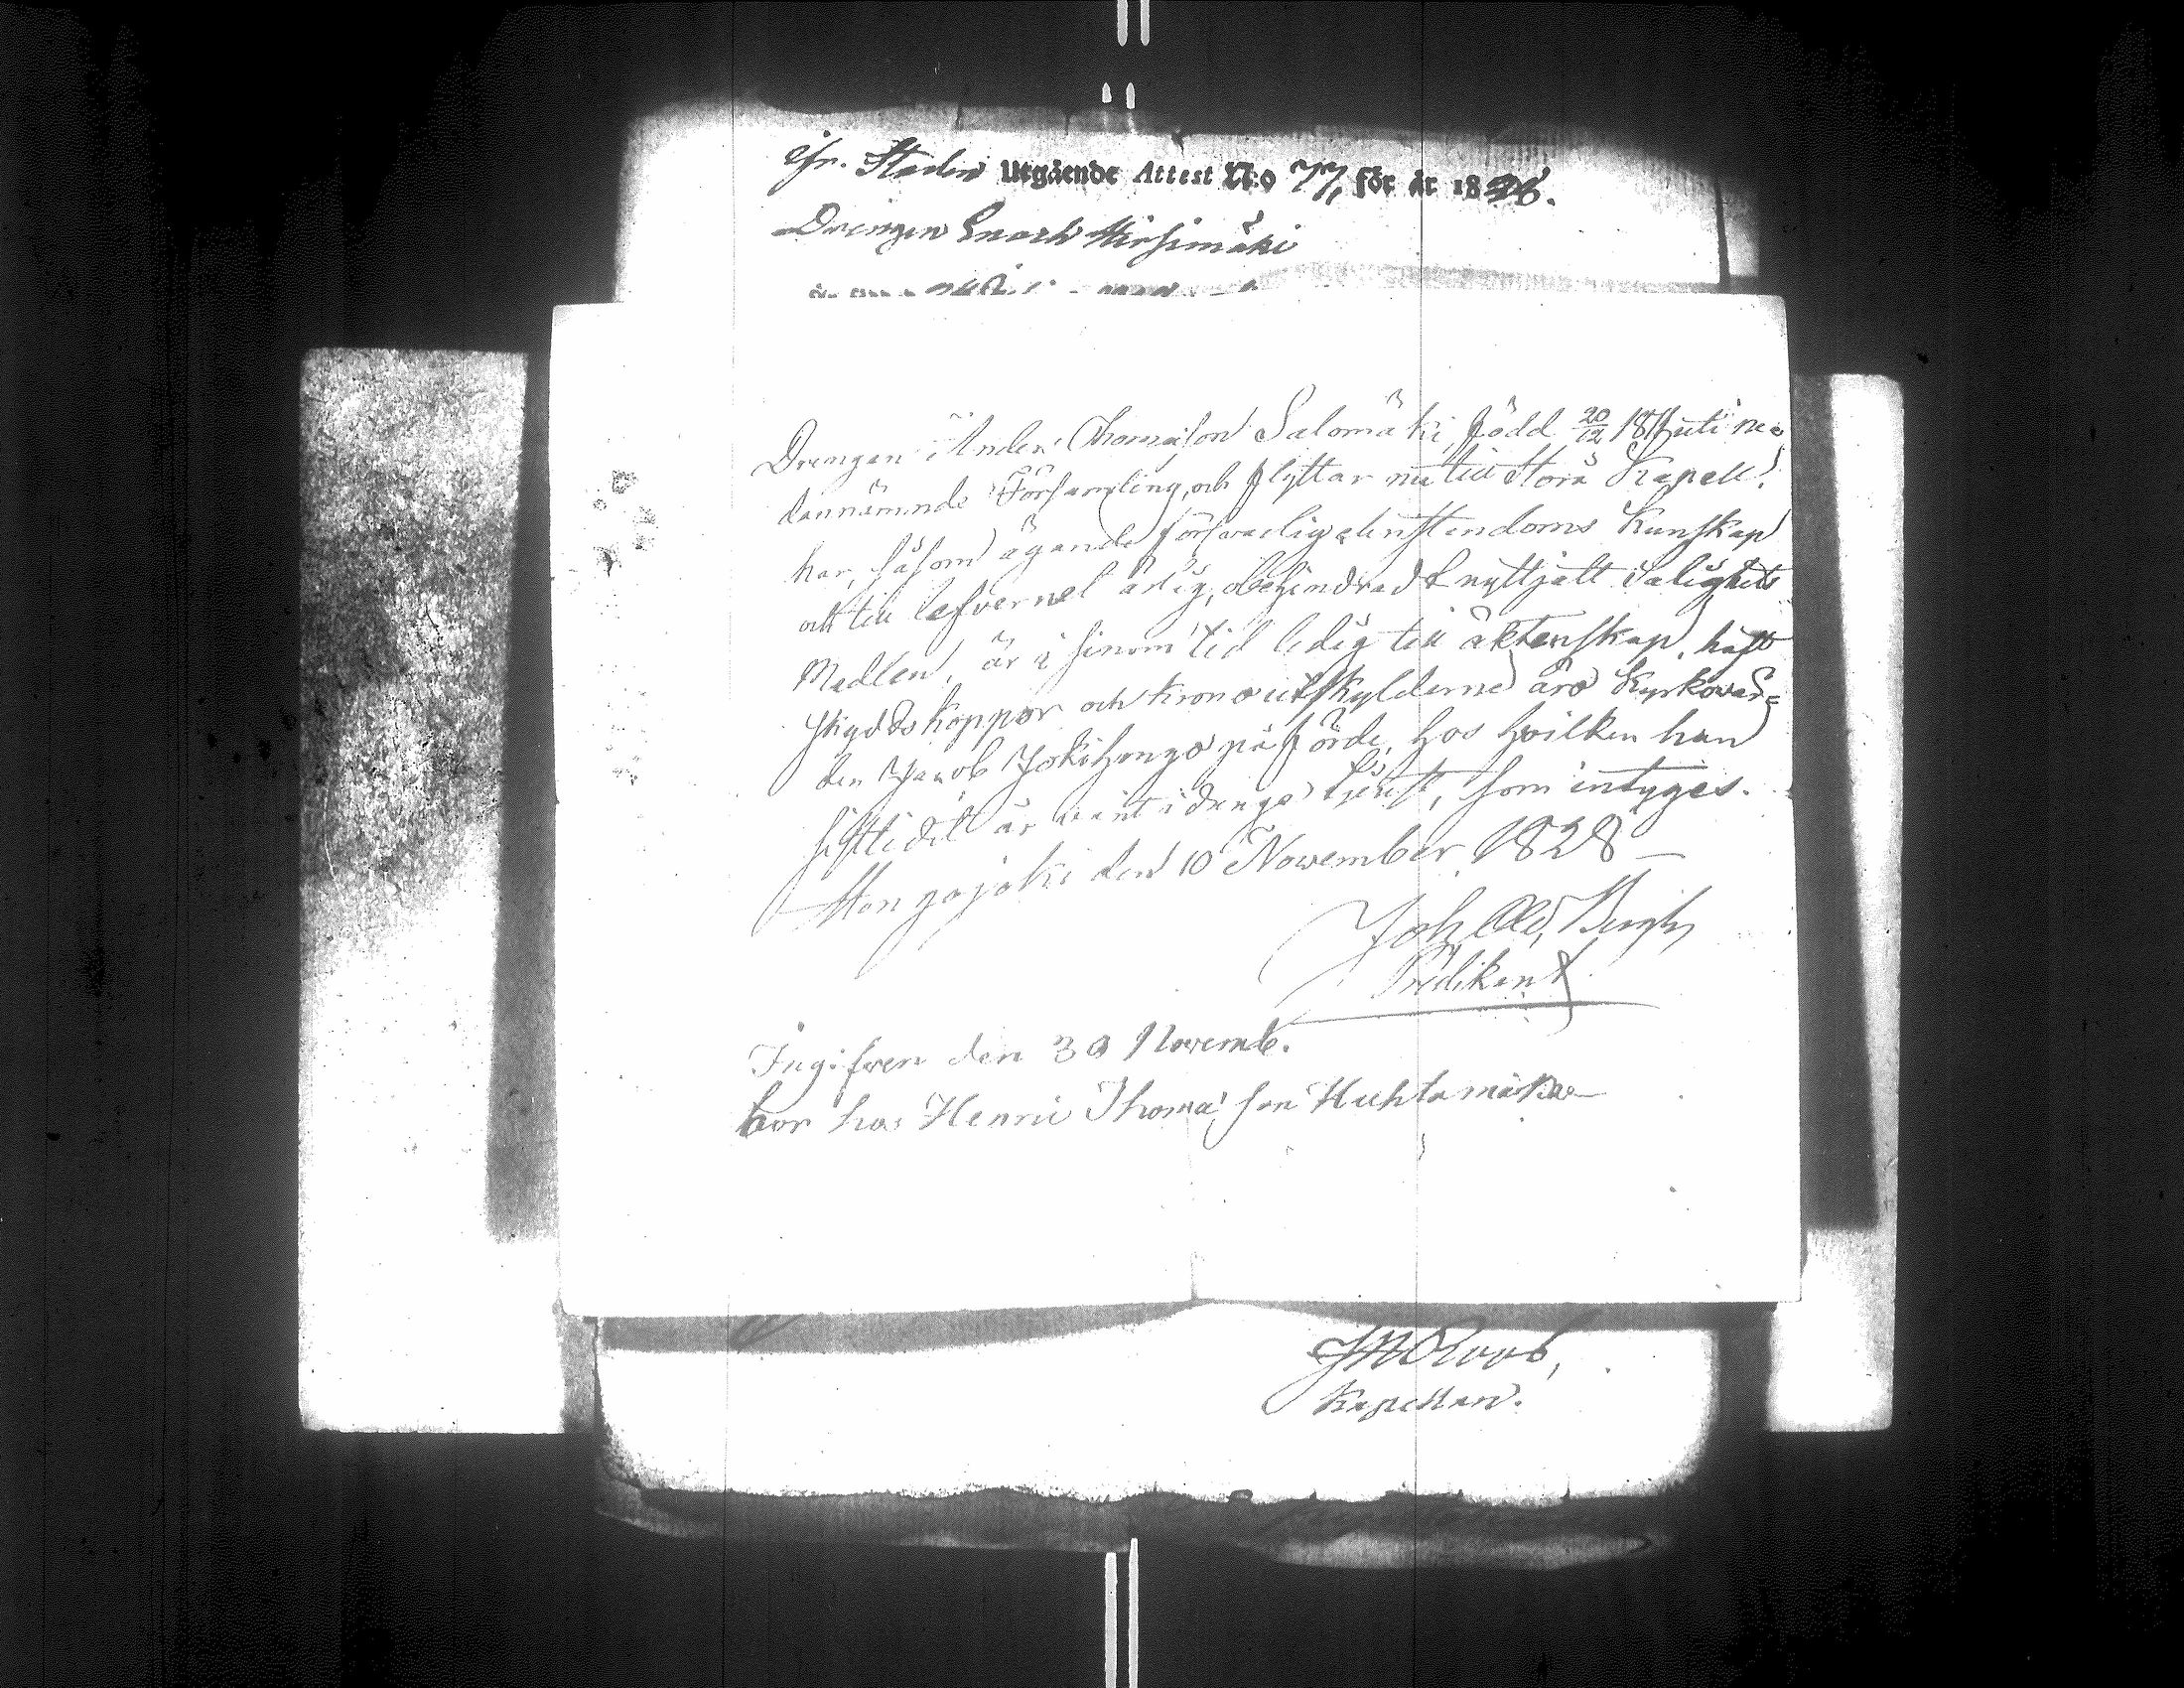 fr. Staden Utgående Attest N:o 77, för år 1826.
Drengen Enoch Kirsimäki
Drengen Anders Thomasson Salomäki, född 20/12 1811 uti ne=
dannämnde Församling, och flyttar nu till Storå Kapell;
har, såsom ägande försvarlig christendoms Kunskap
och till lefvernet ärlig, obehindrad nyttjatt Salighets
Medlen, är i sinom tid ledig till äktenskap, haft
skyddskoppor och Krono utskylderne äro Kyrkovär=
den Jacob Jokihonga påförde, hos hvilken han
sistledit år varit i drengs tjenst, som intyges.
Hongojoki den 10 November 1828
Joh. Ad. Bergh
Predikant
Ingifven den 30 Novemb.
bor hos Henric Thomasson Huhtamäki
Kapellan.